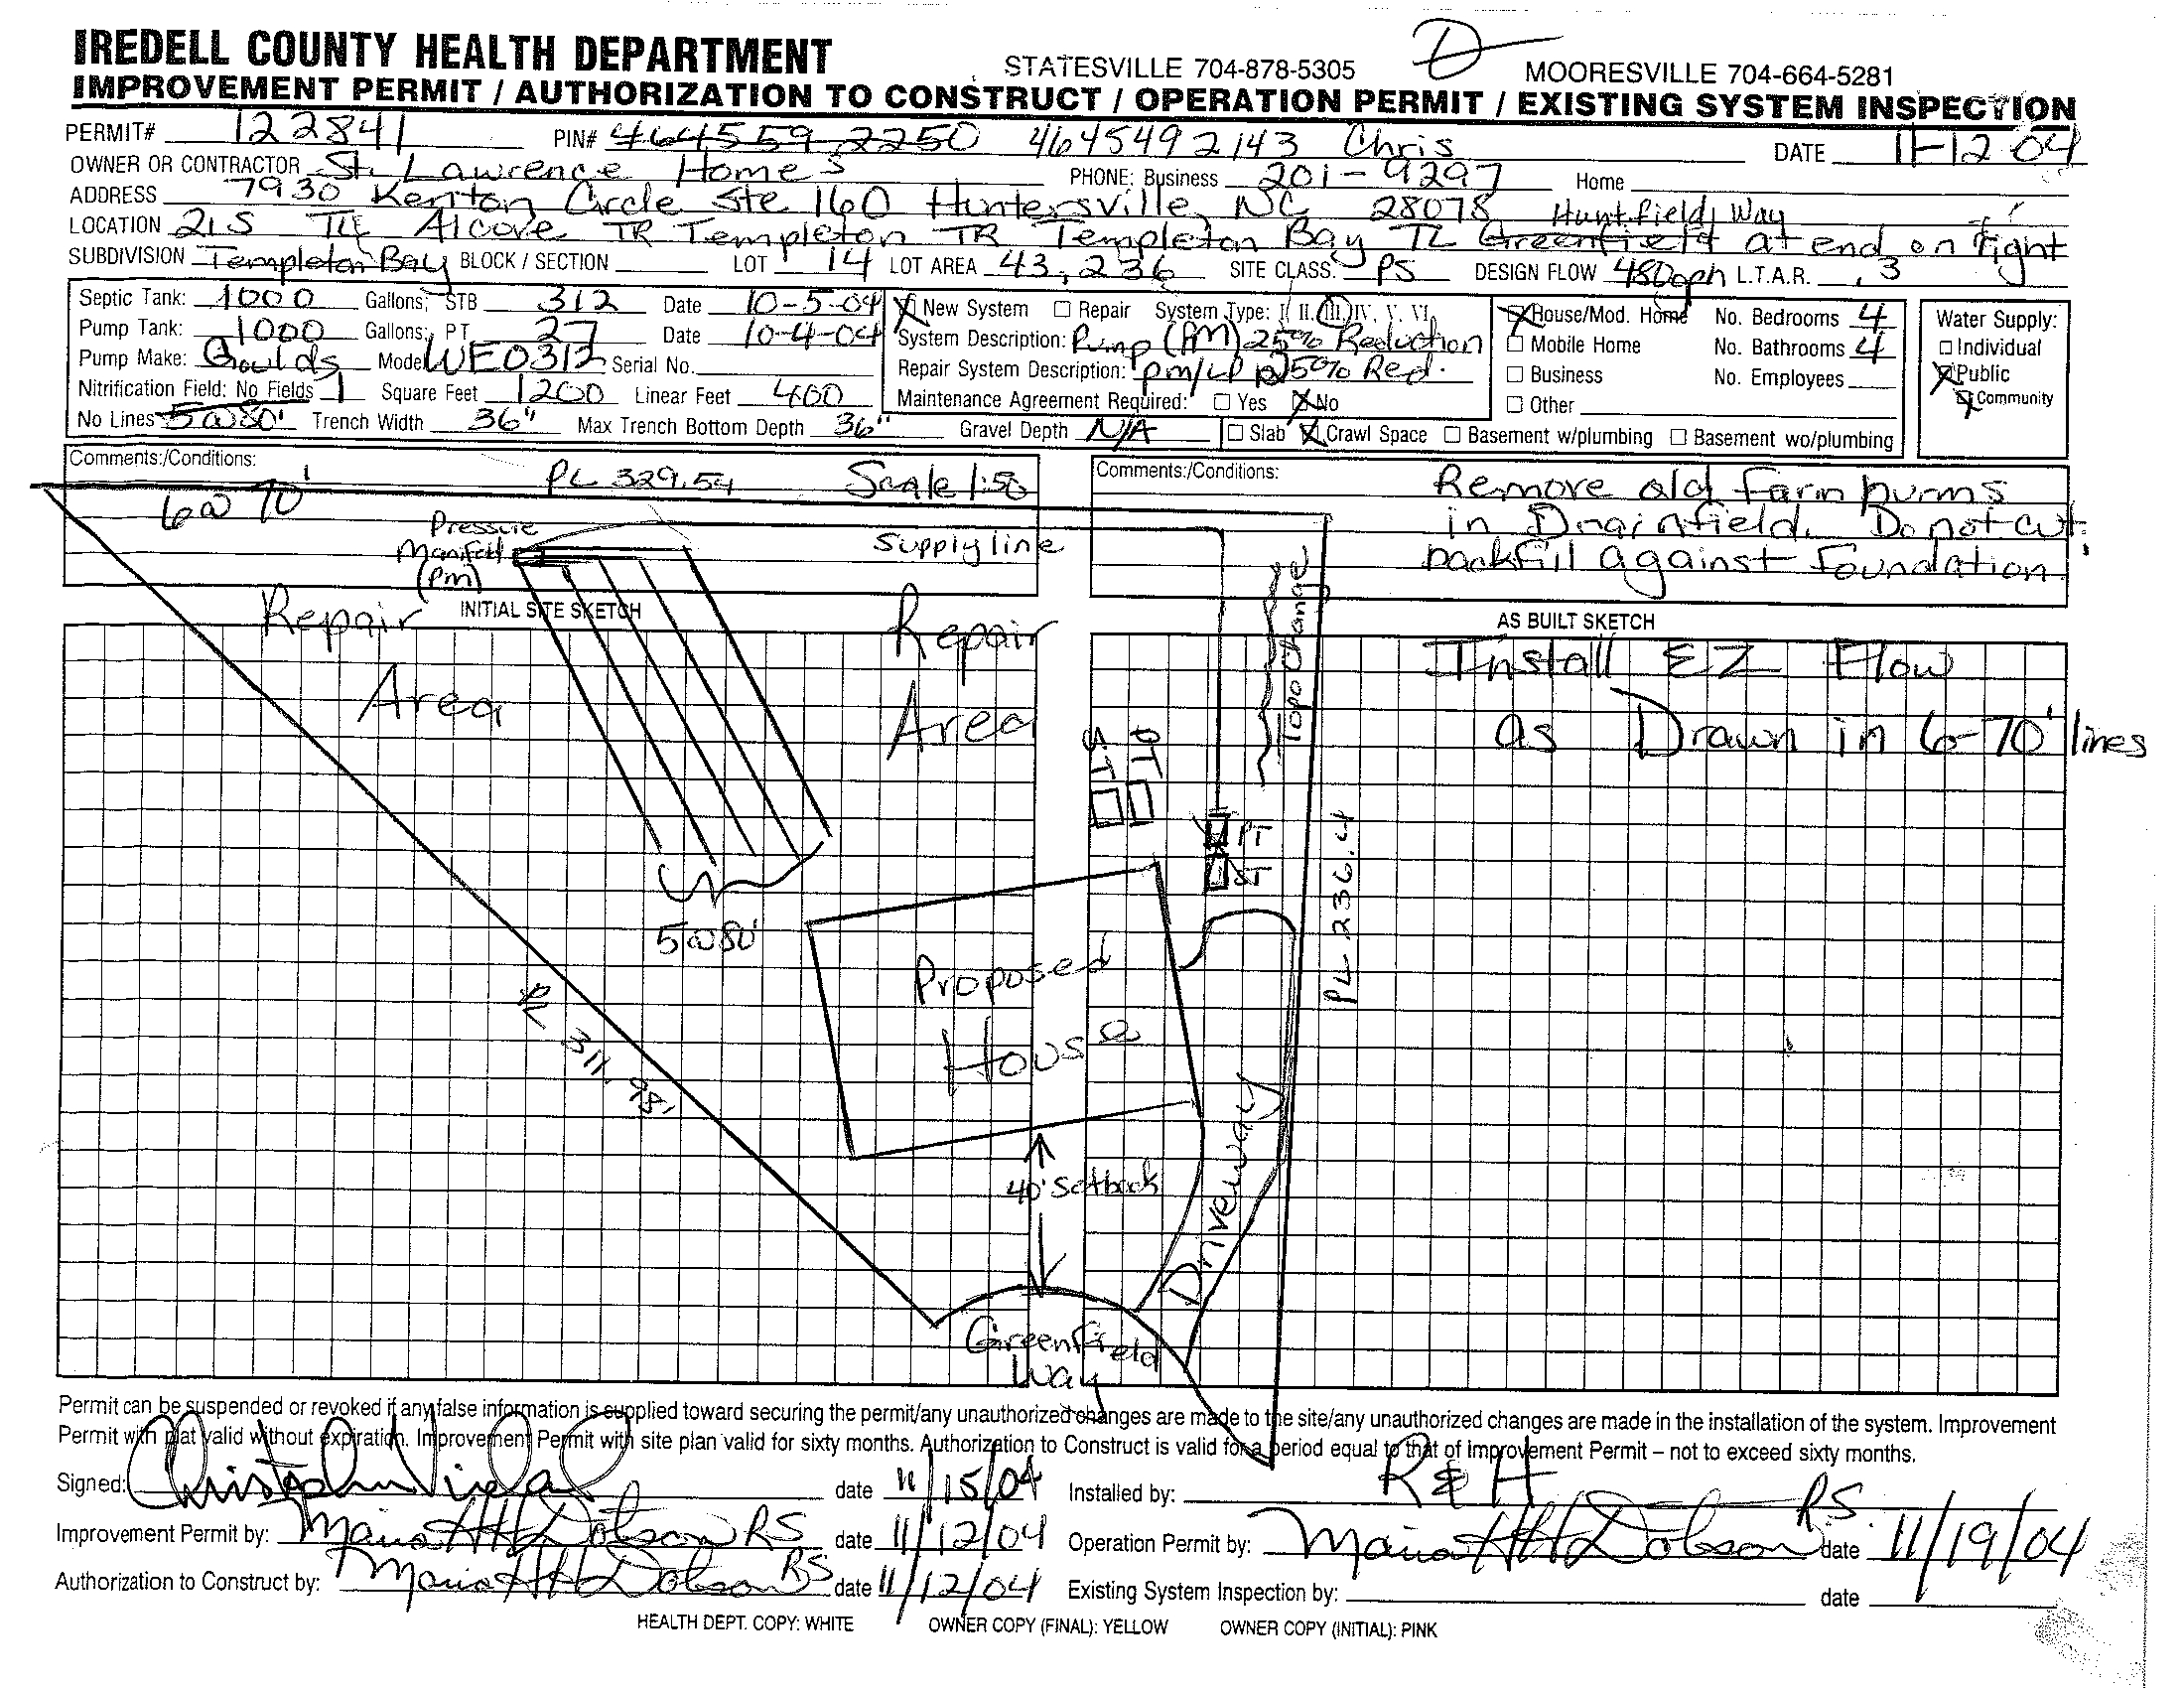 IREDELL COUNTY HEALTH DEPARTMENT STATESVILLE 704-878-5305 D MOORESVILLE 704-664-5281
IMPROVEMENT PERMIT / AUTHORIZATION TO CONSTRUCT / OPERATION PERMIT / EXISTING SYSTEM INSPECTION
PERMIT# 122841 PIN# 464559 2250 4645492143 Chris DATE 11-12 04
OWNER OR CONTRACTOR St. Lawrence Homes PHONE: Business 201-9297 Home
ADDRESS 7930 Kenton Circle Ste 160 Huntersville, NC 28078 Huntfield Way
LOCATION 21S TL Alcove TR Templeton TR Templeton Bay TL Greenfield at end on right
SUBDIVISION Templeton Bay BLOCK / SECTION LOT 14 LOT AREA 43,236 SITE CLASS. PS DESIGN FLOW 480gph L.T.A.R. .3
Septic Tank: 1000 Gallons; STB 312 Date 10-5-04 New System Repair System Type: I II, III, IV, V, VI, House/Mod. Home No. Bedrooms 4 Water Supply:
Pump Tank: 1000 Gallons; PT 27 Date 10-4-04 System Description: Pump (PM) 25% Reduction Mobile Home No. Bathrooms 4 Individual
Pump Make: Goulds Model WE0312 Serial No. Repair System Description: pm/ 25% Red. Business No. Employees Public
Nitrification Field: No Fields 1 Square Feet 1200 Linear Feet 400 Maintenance Agreement Required: Yes No Other Community
No Lines 5@80' Trench Width 36" Max Trench Bottom Depth 36" Gravel Depth N/A Slab Crawl Space Basement w/plumbing Basement wo/plumbing
Comments:/Conditions: PL 329.54 Scale 1:50
6@ 70'
Pressure
Manifold
(PM)
Supply line
Comments:/Conditions: Remove old farm burms
in Drainfield. Do not cut.
backfill against Foundation.
INITIAL SITE SKETCH
AS BUILT SKETCH
Repair
Area
Repair
Area
Topo change
Install EZ Flow
as Drawn in 6-70' lines
ST
PT
PT
ST
PL 236.4
5@80'
Proposed
House
PL 311.98'
40' Setback
Driveway
Greenfield
Way
Permit can be suspended or revoked if any false information is supplied toward securing the permit/any unauthorized changes are made to the site/any unauthorized changes are made in the installation of the system. Improvement
Permit with plat valid without expiration. Improvement Permit with site plan valid for sixty months. Authorization to Construct is valid for a period equal to that of Improvement Permit – not to exceed sixty months.
Signed: date 11/15/04 Installed by: R & H
Improvement Permit by: Maria HH Dobson RS date 11/12/04 Operation Permit by: Maria HH Dobson R.S. date 11/19/04
Authorization to Construct by: Maria HH Dobson RS date 11/12/04 Existing System Inspection by: date
HEALTH DEPT. COPY: WHITE OWNER COPY (FINAL): YELLOW OWNER COPY (INITIAL): PINK